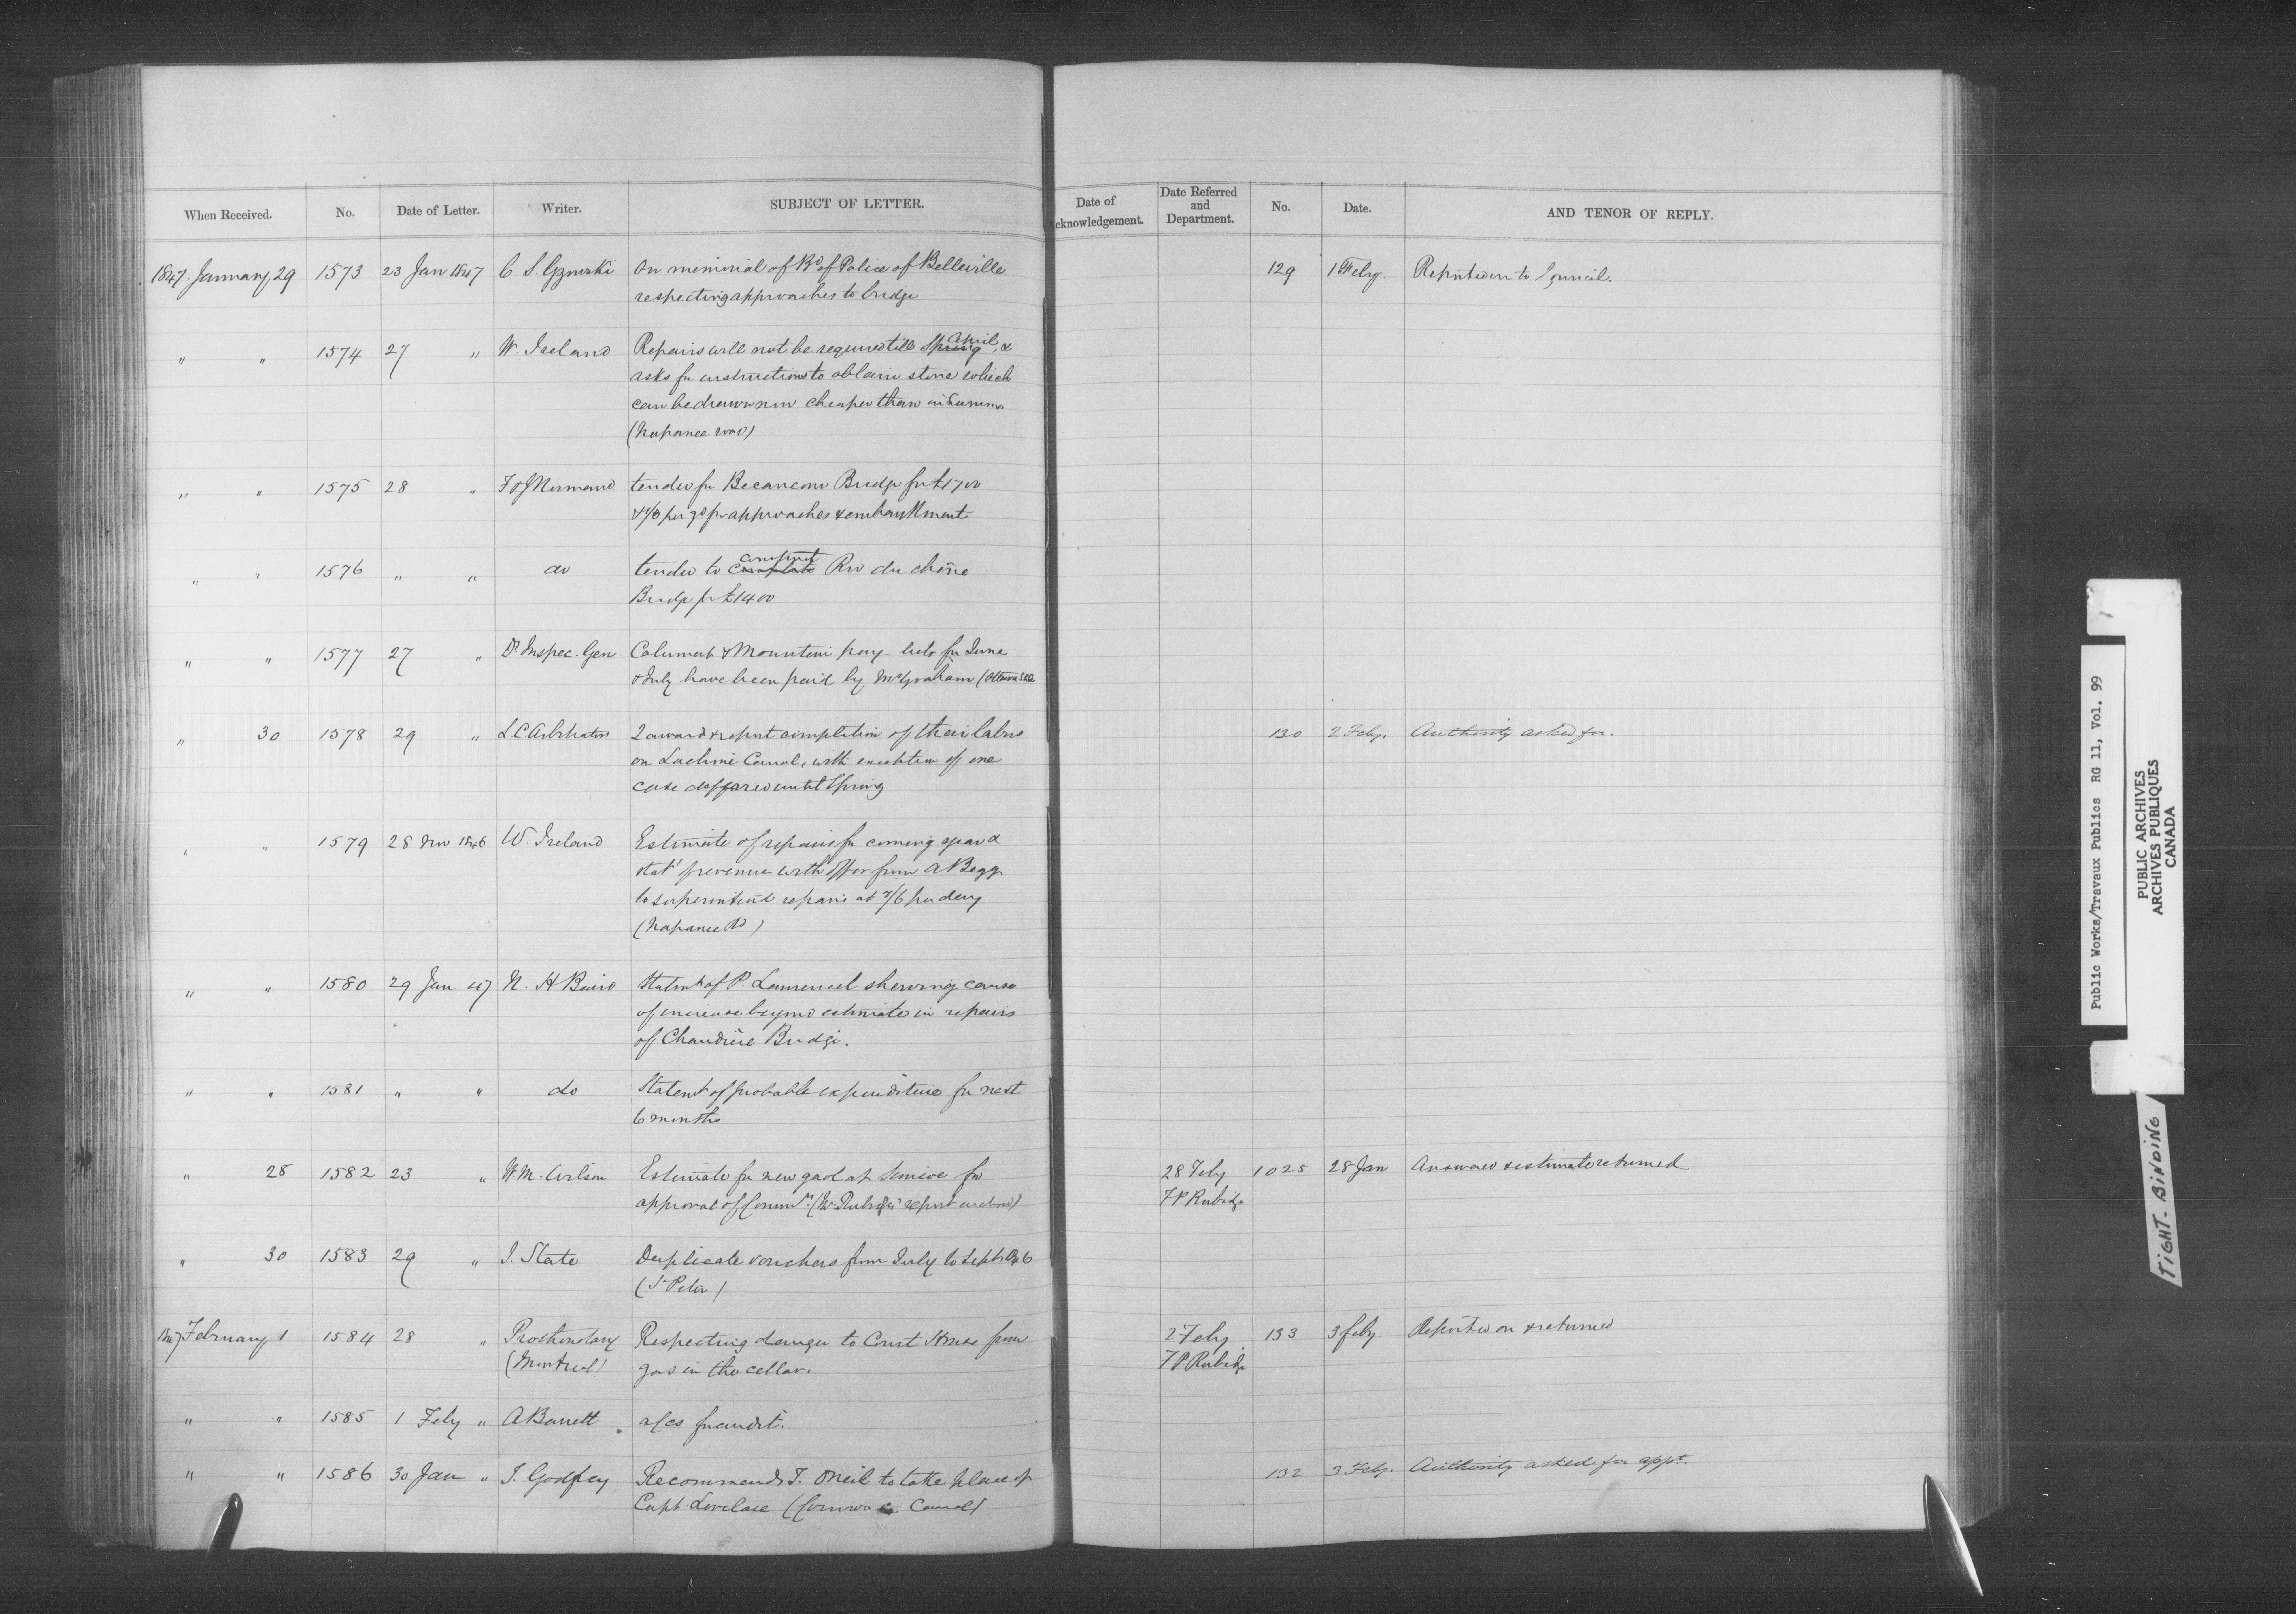 When Received. No. Date of Letter. Writer. SUBJECT OF LETTER. Date of Date Referred No. Date. AND TENOR OF REPLY.
cknowledgement. and
Department.
1847 January 29 1573 23 Jan 1847 C. S. Gzowski On memorial of Bd of Police of Belleville 129 1 Feby. Reported on to Council.
respecting approaches to bridge
" " 1574 27 " W. Ireland Repairs will not be required till Spring April, &
asks for instructions to obtain stone which
can be drawn now cheaper than in Summer
(Napanee road)
" " 1575 28 " Normand tender for Becancour Bridge for £1700
per yd for approaches & embankment
" " 1576 " " do tender to complete construct Riv du chêne
Bridge for £1400
" " 1577 27 " Dy Inspec. Gen. Calumet & Mountain pay lists for June
& July have been paid by Mr Graham (Ottawa
" 30 1578 29 " L.C. Arbitrators 2 award & report completion of their labor 130 2 Feby. Authority asked for.
on Lachine Canal, with exception of one
case deferred until Spring
" " 1579 28 Nov 1846 W. Ireland Estimate of repairs for coming year &
stat' of revenue with offer from A Begg
to superintend repairs at 7/6 per day
(Napanee Rd)
" " 1580 29 Jan 47 N. H Baird Statmt of P. shewing cause
of increase beyond estimate in repairs
of Chaudière Bridge.
" " 1581 " " do Statemt of probable expenditure for next
6 months
" 28 1582 23 " W. M. Wilson Estimate for new gaol at Simcoe for 28 Feby 1025 28 Jan Answered & estimate returned
approval of Commrs (Mr Rubidge's report enclosed) F P Rubidge
" 30 1583 29 " J. Slate Duplicate vouchers from July to Septr 1846
(St Peter)
1847 February 1 1584 28 " Prothonotary Respecting danger to Court House from 2 Feby 133 3 feby. Reported on & returned
(Montreal) gas in the cellar. F P Rubidge
" " 1585 1 Feby " A Barrett a/cs for audit.
" " 1586 30 Jan " J. Godfrey Recommends J. ONeil to take place of 132 3 Feby. Authority asked for appt.
Capt. Lovelace (Cornwall Canal)
Public Works/Travaux Publics RG 11, Vol. 99
PUBLIC ARCHIVES
ARCHIVES PUBLIQUES
CANADA
TIGHT - BINDING